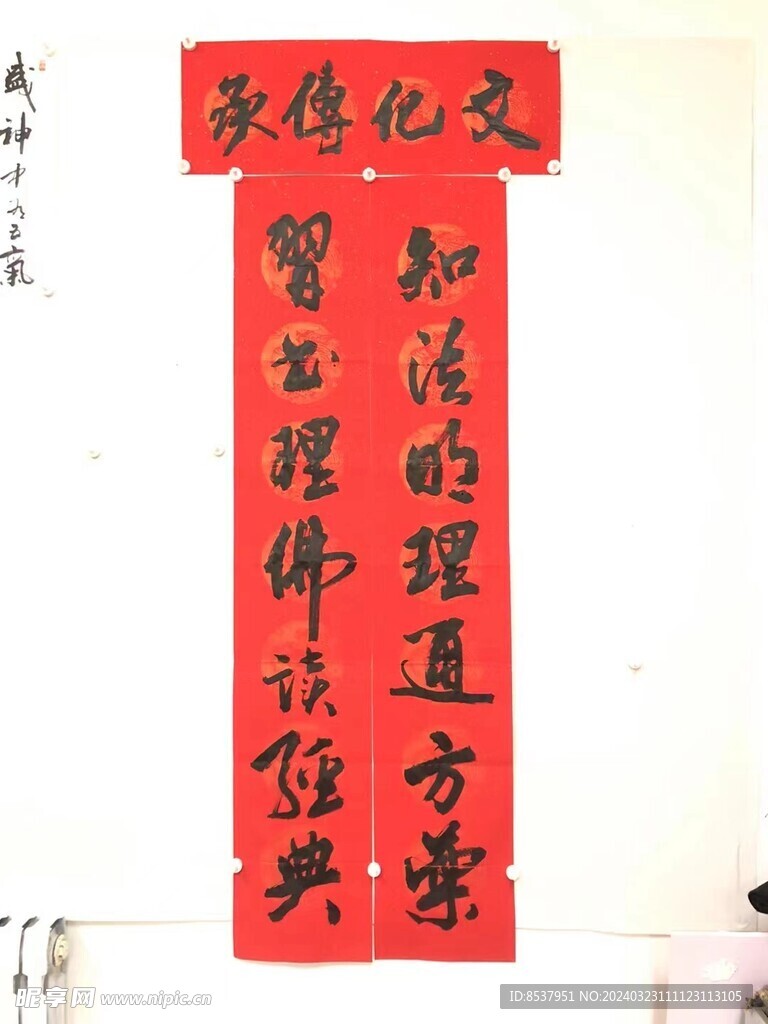 文化傳承
知法明理通方藥
習书理佛读經典
盛神中有五氣
昵享网 www.nipic.cn
ID:8537951 NO:20240323111123113105